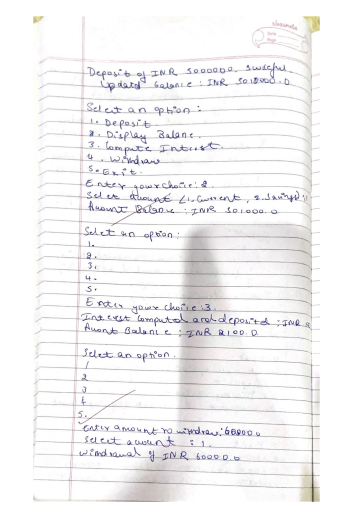 classmate
Date
Page
Deposit of INR 5000000. Succesful.
Updated balance : INR 5010000.0
Select an option :
1. Deposit.
2. Display Balanc.
3. Compute Interest.
4. Withdraw
5. Exit.
Enter your choice: 2.
Select Account (1. Current, 2. Savings)
Amount Balance : INR 501000.0
Select an option :
1.
2.
3.
4.
5.
Enter your choice : 3.
Interest computed and deposited : INR
Amount Balance : INR 2100.0
Select an option.
1
2
3
4
5.
Enter amount to withdraw: 60000.0
Select account : 1.
Withdrawal of INR 60000.0